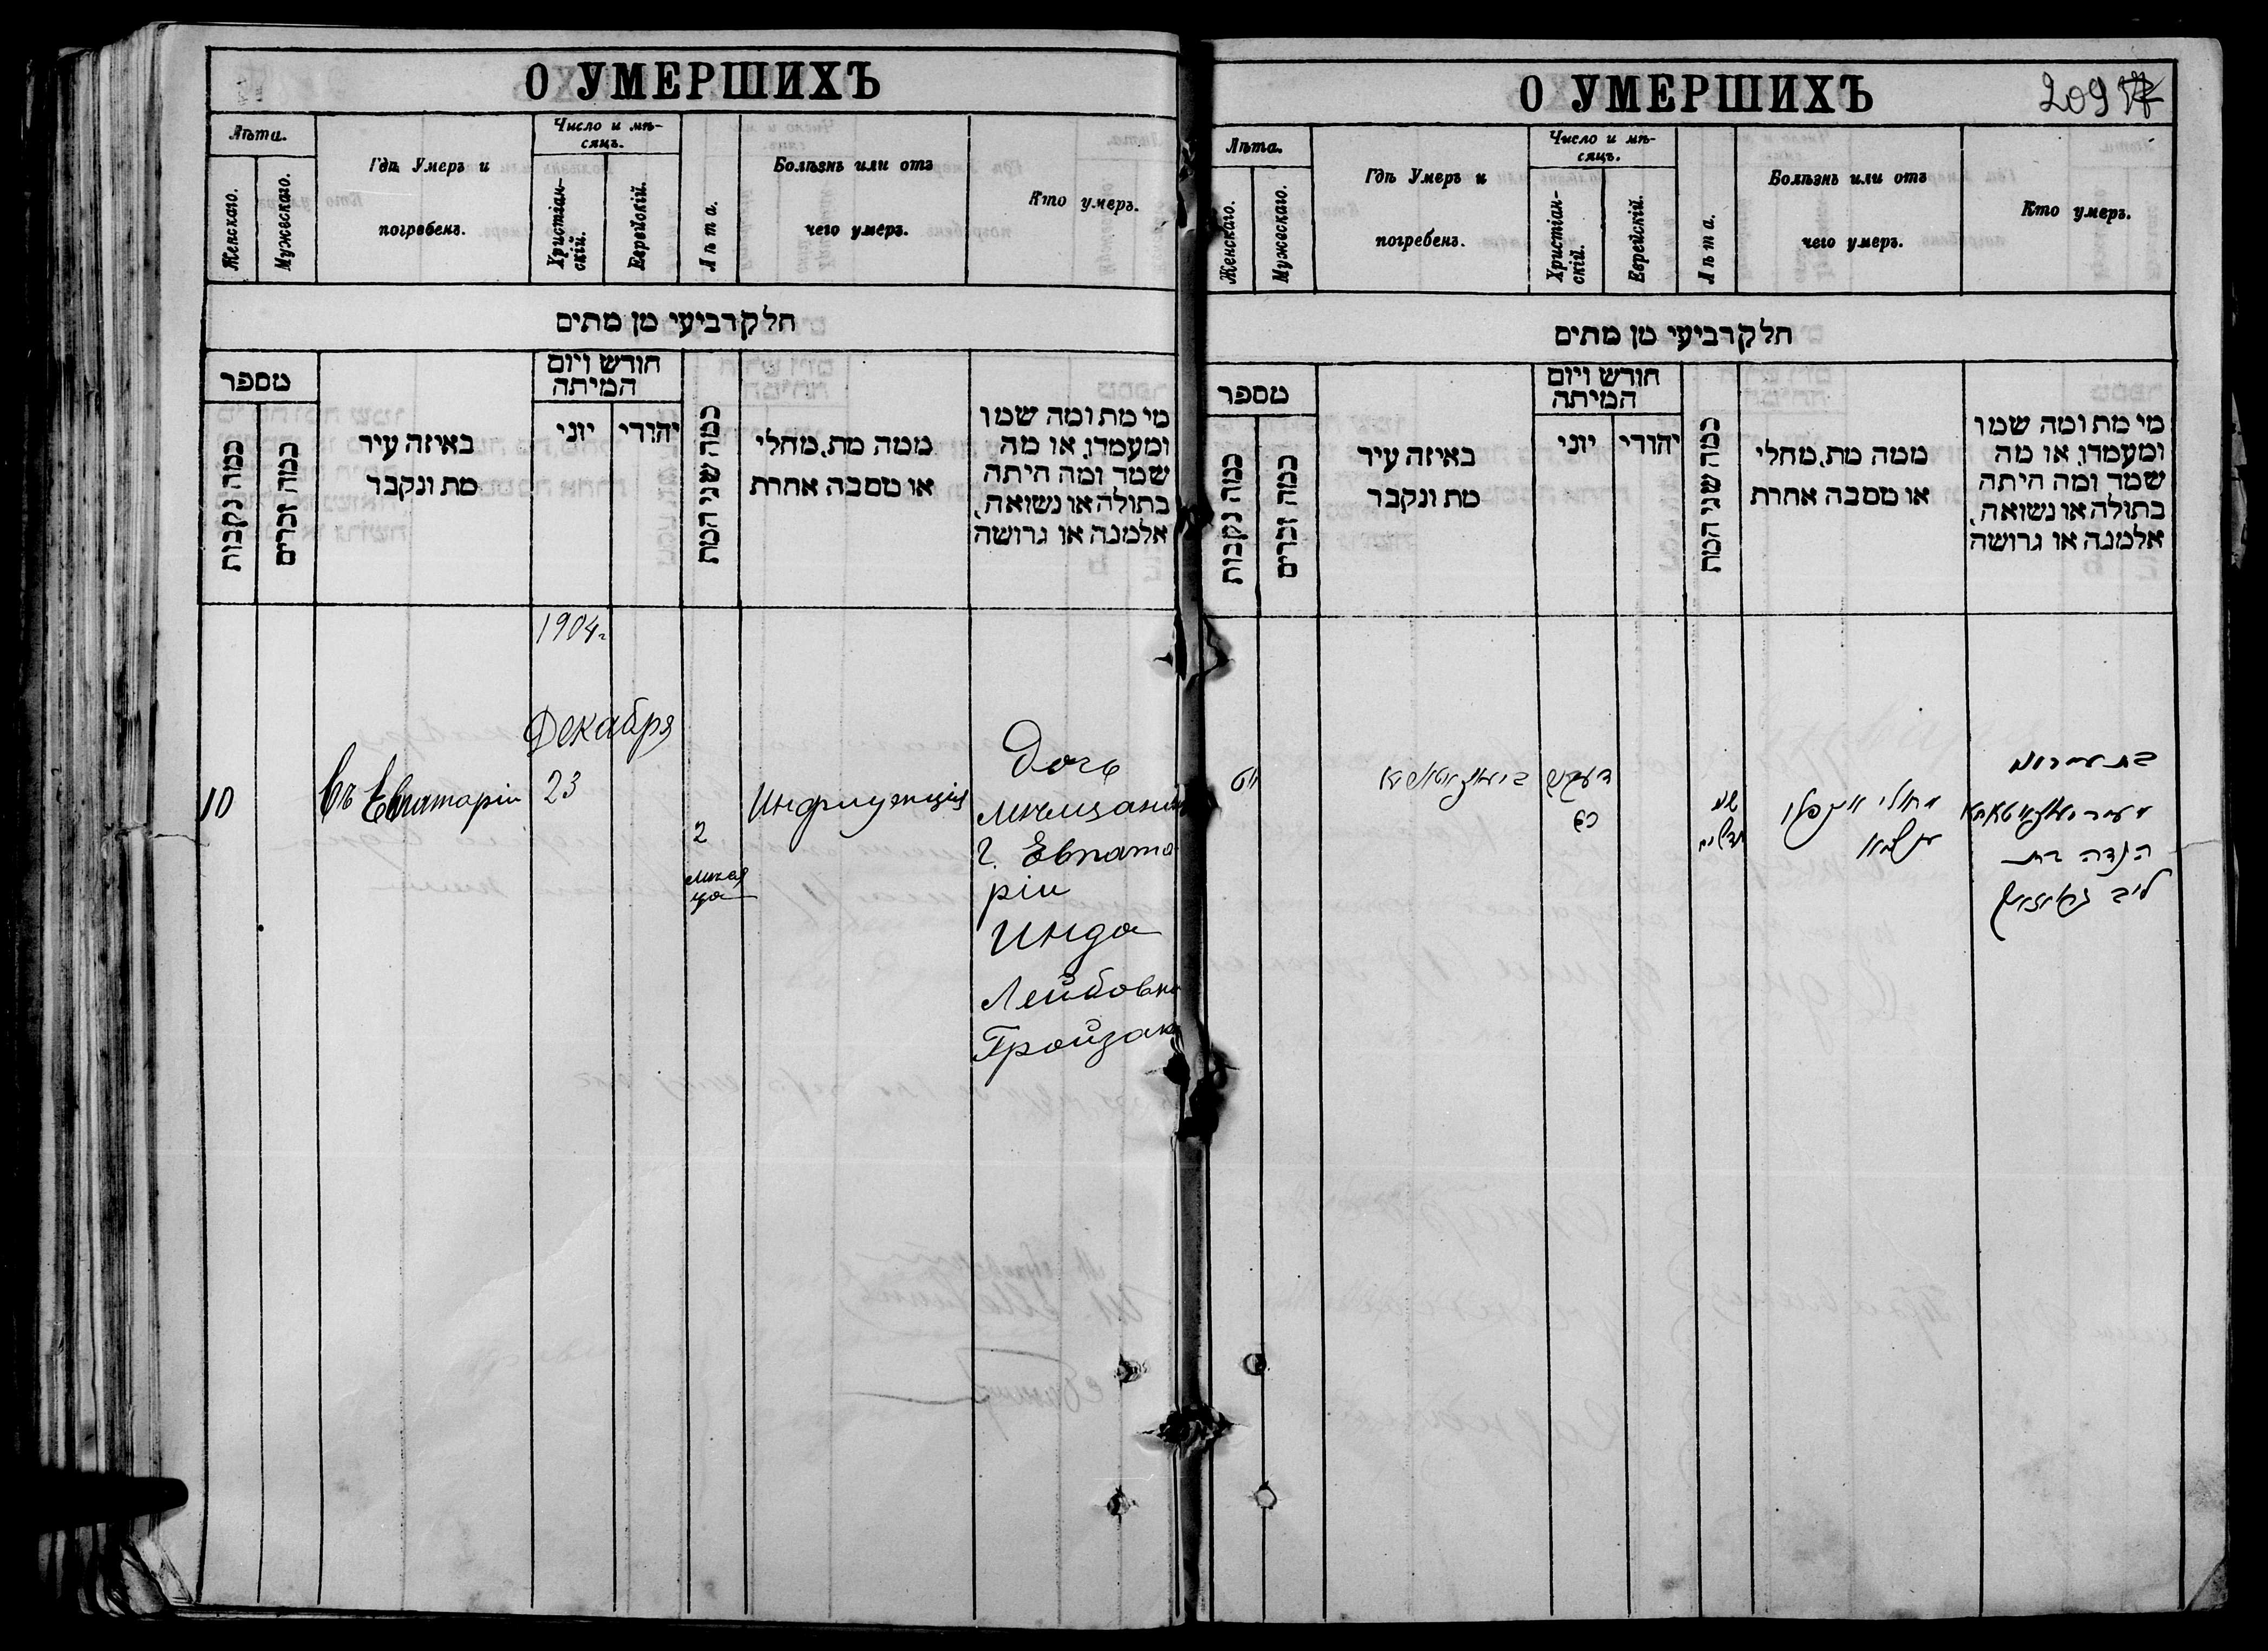 О УМЕРШИХЪ
Лѣта.
Женскаго.
Мужескаго.
Гдѣ Умеръ и
погребенъ.
Число и мѣ-
сяцъ.
Христіан-
скій.
Еврейскій.
Лѣта.
Болѣзнь или отъ
чего умеръ.
Кто умеръ.
חלק רביעי מן מתים
מספר
כמה נקבות
כמה זכרים
באיזה עיר
מת ונקבר
חודש ויום
המיתה
יוני
יהודי
כמה שני המת
ממה מת, מחלי
או מסבה אחרת
מי מת ומה שמו
ומעמדו, או מה
שמד ומה היתה
בתולה או נשואה,
אלמנה או גרושה
1904 г.
Декабря
10
Въ Евпаторіи
23
2
мѣся
ца
Инфлуэнція
Дочь
мѣщанина
г. Евпато
ріи
Инда
Лейбовна
Гройзак
О УМЕРШИХЪ
209
Лѣта.
Женскаго.
Мужескаго.
Гдѣ Умеръ и
погребенъ.
Число и мѣ-
сяцъ.
Христіан-
скій.
Еврейскій.
Лѣта.
Болѣзнь или отъ
чего умеръ.
Кто умеръ.
חלק רביעי מן מתים
מספר
כמה נקבות
כמה זכרים
באיזה עיר
מת ונקבר
חודש ויום
המיתה
יוני
יהודי
כמה שני המת
ממה מת, מחלי
או מסבה אחרת
מי מת ומה שמו
ומעמדו, או מה
שמד ומה היתה
בתולה או נשואה,
אלמנה או גרושה
מחולי
בת
הנדה בת
ליב